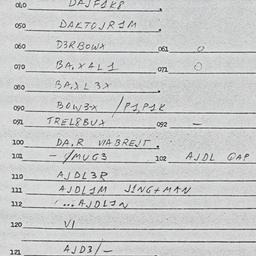 040 DAJF1K8
050 DAKTOJR1M
060 D3RBOWX 061 O
070 BA.XAL1 071 O
080 BA.XL3X
090 BOW3-X /P1,P1K
091 TREL8BUX 092 –
100 DA.R VIABREJT.
101 – /MUG3 102 AJDL GAP
110 AJDL3R
111 AJDL1M J1NG+MAN
112 '...AJDL1N
120 VI
121 AJD3/–